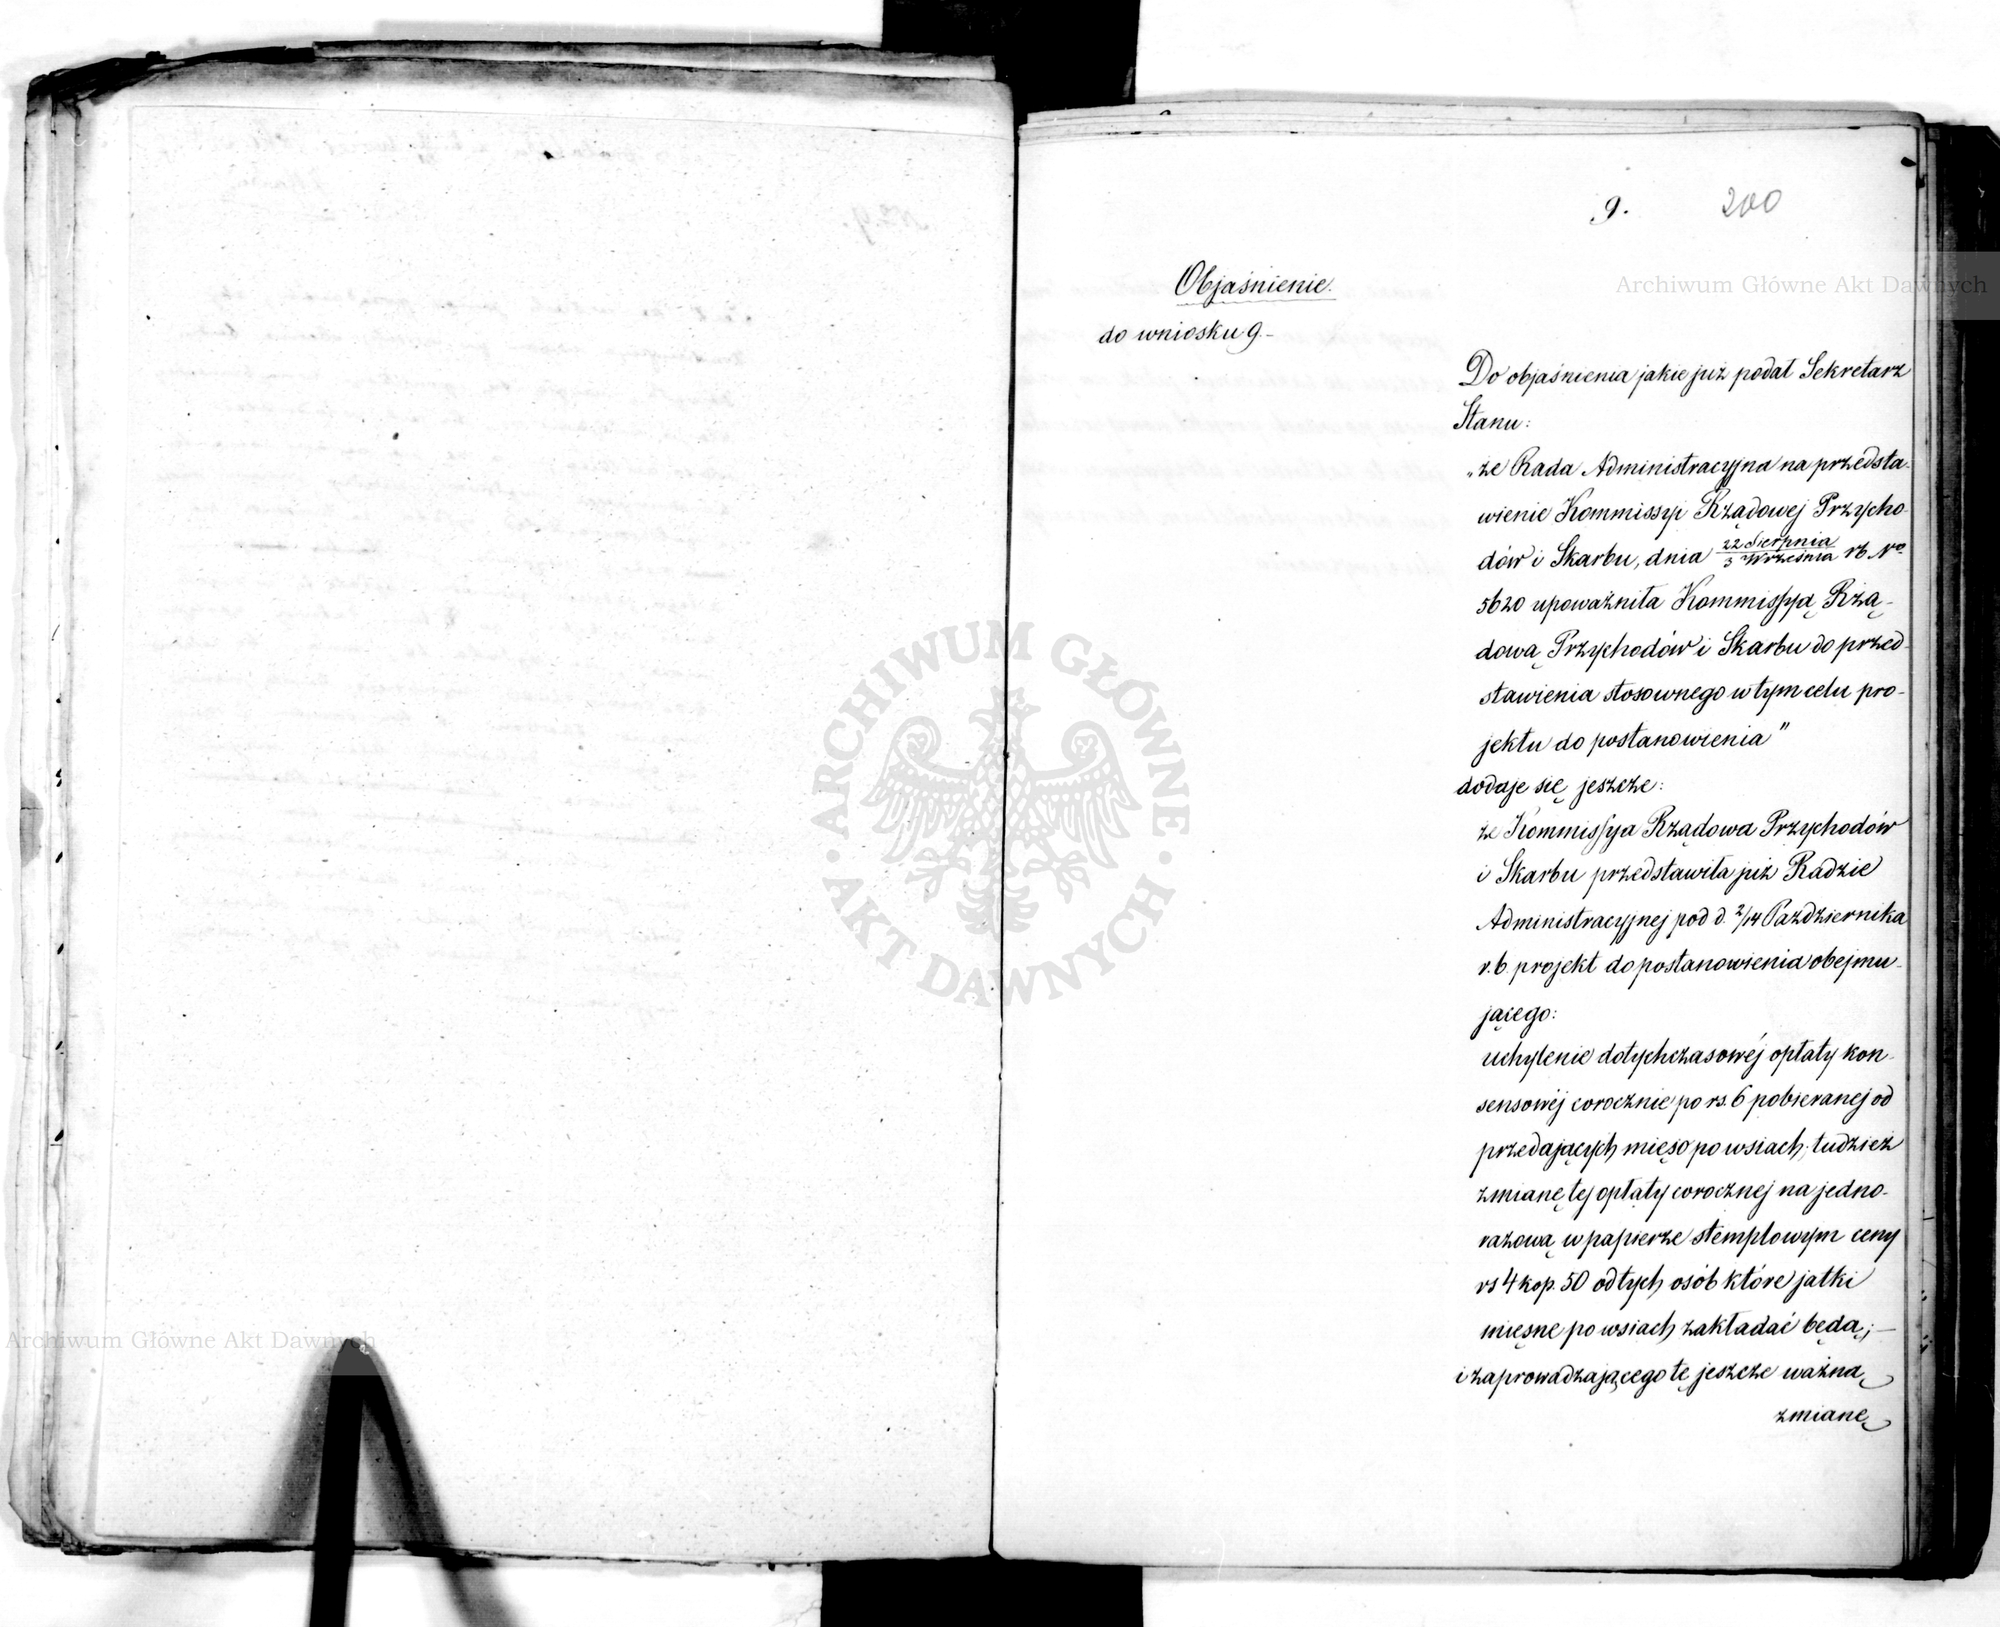 9.
200
Objaśnienie.
do wniosku 9.-
Do objaśnienia jakie już podał Sekretarz
Stanu:
„że Rada Administracyjna na przedsta-
wienie Kommissyi Rządowej Przycho-
dów i Skarbu, dnia 22 Sierpnia/3 Września rb No
5620 upoważniła Kommissyą Rzą-
dową Przychodów i Skarbu do przed-
stawienia stosownego w tym celu pro-
jektu do postanowienia"
dodaje się jeszcze:
że Kommissya Rządowa Przychodów
i Skarbu przedstawiła już Radzie
Administracyjnej pod d. 2/14 Października
r.b. projekt do postanowienia obejmu-
jącego:
uchylenie dotychczasowéj opłaty kon-
sensowéj corocznie po rs. 6 pobieranej od
przedających mięso po wsiach; tudzież
zmianę tej opłaty corocznej na jedno-
razową w papierze stemplowym ceny
rs 4 kop. 50 od tych osób które jatki
mięsne po wsiach zakładać będą;—
i zaprowadzającego tę jeszcze ważną
zmianę
Archiwum Główne Akt Dawnych
ARCHIWUM GŁÓWNE
· AKT DAWNYCH ·
Archiwum Główne Akt Dawnych